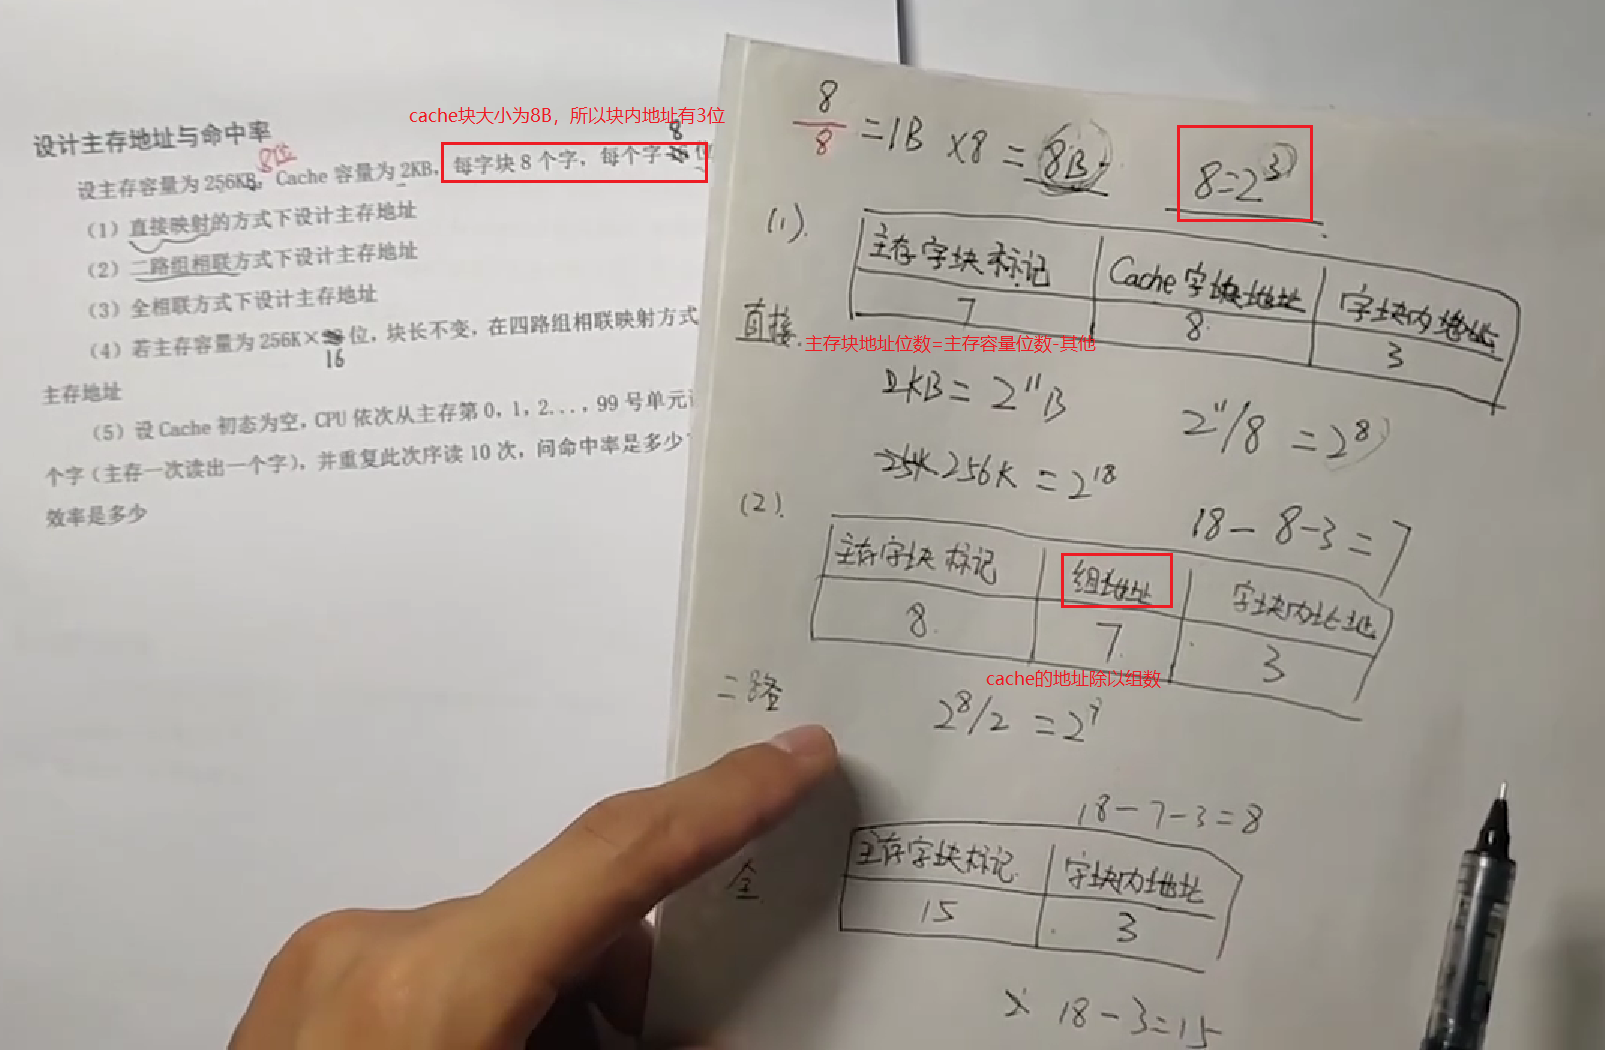 设计主存地址与命中率
cache块大小为8B，所以块内地址有3位
8位
8
设主存容量为256KB，Cache 容量为 2KB，每字块 8 个字，每个字
（1）直接映射的方式下设计主存地址
（2）二路组相联方式下设计主存地址
（3）全相联方式下设计主存地址
（4）若主存容量为 256K× 位，块长不变，在四路组相联映射方式
16
主存地址
（5）设 Cache 初态为空，CPU 依次从主存第 0，1，2...，99 号单元
个字（主存一次读出一个字），并重复此次序读 10 次，问命中率是多少
效率是多少
8/8 = 1B ×8 = 8B
8=2^3
(1).
直接.
主存字块标记 Cache 字块地址 字块内地址
7 8 3
主存块地址位数=主存容量位数-其他
2KB = 2^11 B
2^11/8 = 2^8
256K = 2^18
18-8-3=7
(2).
二路
主存字块标记 组地址 字块内地址
8 7 3
cache的地址除以组数
2^8/2 = 2^7
18-7-3=8
全
主存字块标记 字块内地址
15 3
18-3=15